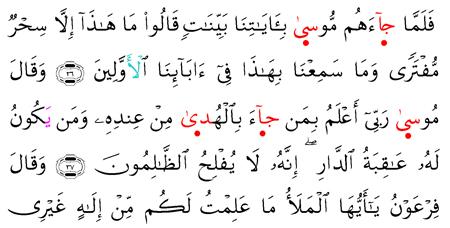 فَلَمَّا جَآءَهُم مُّوسَىٰ بِـَٔايَـٰتِنَا بَيِّنَـٰتٍ قَالُوا۟ مَا هَـٰذَآ إِلَّا سِحْرٌ
مُّفْتَرًى وَمَا سَمِعْنَا بِهَـٰذَا فِىٓ ءَابَآئِنَا ٱلْأَوَّلِينَ ﴿٣٦﴾ وَقَالَ
مُوسَىٰ رَبِّىٓ أَعْلَمُ بِمَن جَآءَ بِٱلْهُدَىٰ مِنْ عِندِهِۦ وَمَن يَكُونُ
لَهُۥ عَـٰقِبَةُ ٱلدَّارِ ۖ إِنَّهُۥ لَا يُفْلِحُ ٱلظَّـٰلِمُونَ ﴿٣٧﴾ وَقَالَ
فِرْعَوْنُ يَـٰٓأَيُّهَا ٱلْمَلَأُ مَا عَلِمْتُ لَكُم مِّنْ إِلَـٰهٍ غَيْرِى